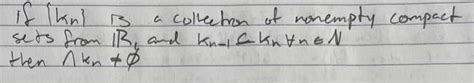 if {kn} is a collection of nonempty compact
sets from ℝ, and kn-1 ⊆ kn ∀n∈N
then ∩kn ≠ ∅